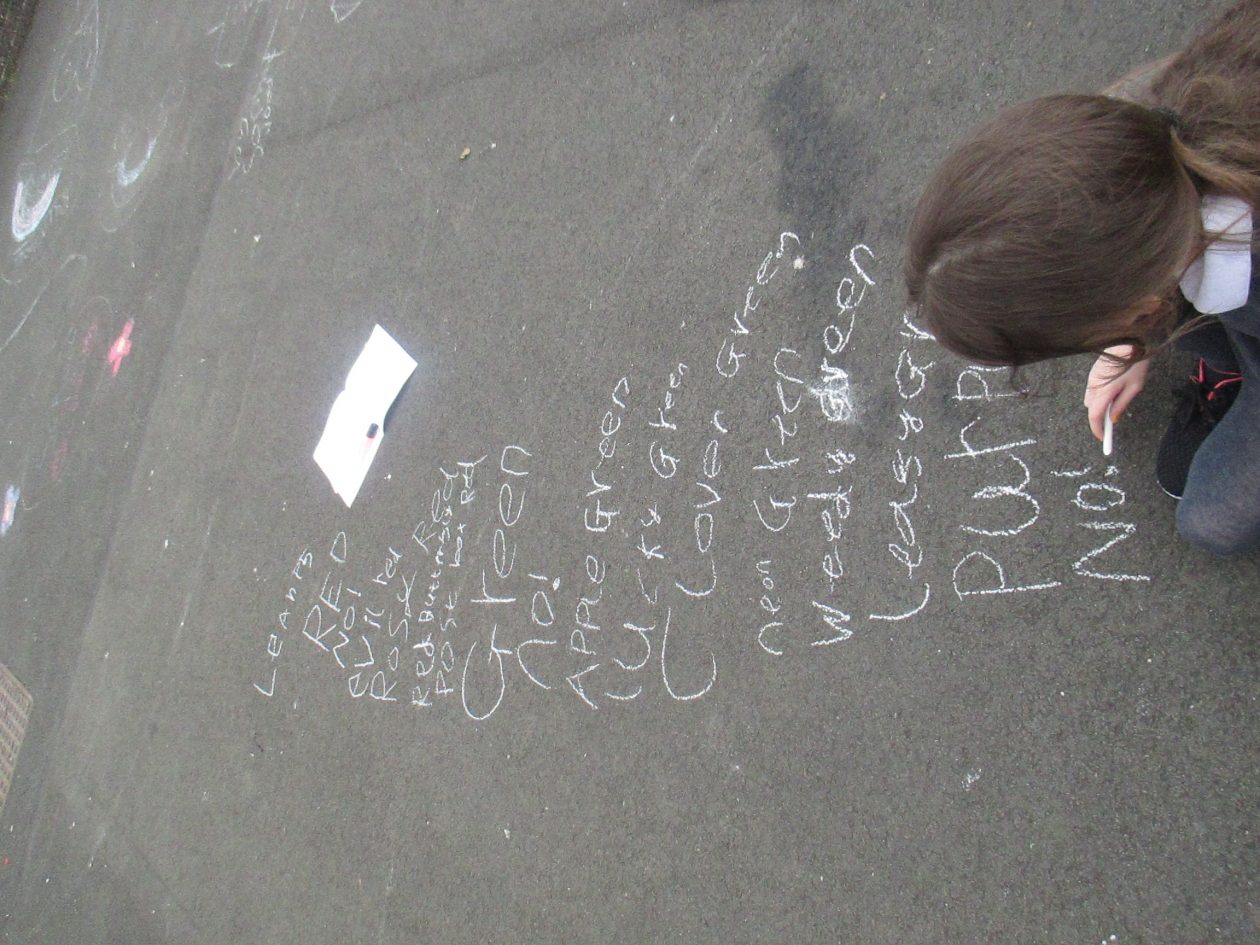 Leanne
RED
No!
evill red
Rosy Red
Red
Post box Red
Green
no!
Apple Green
lucky Green
Clover Green
neon Green
weedy green
Leasy Gr
Purp
No!